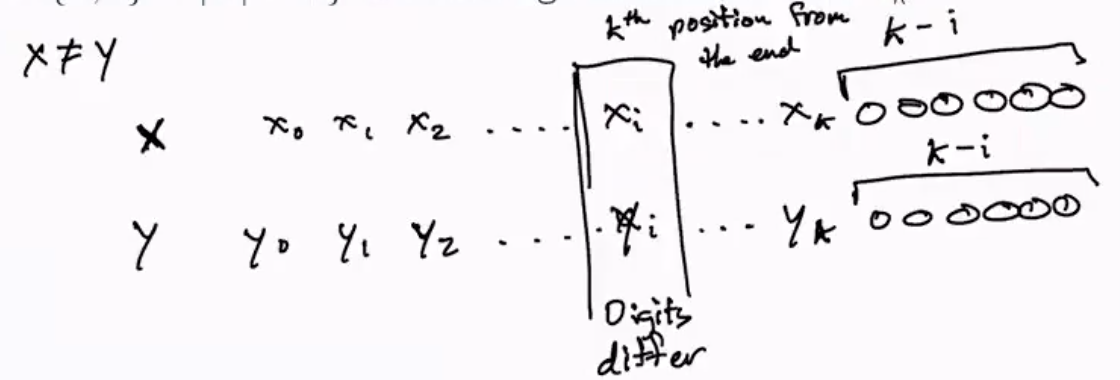 kth position from
the end
k-i
x≠y
x x0 x1 x2 .... xi .... xk 000000
k-i
y y0 y1 y2 .... yi ... yk 000000
Digits
differ